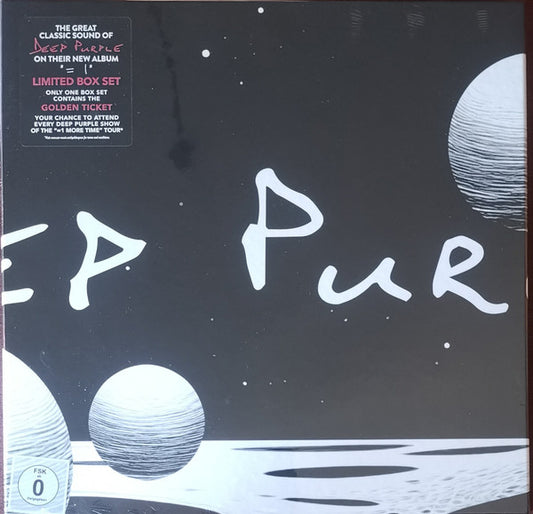 THE GREAT
CLASSIC SOUND OF
DEEP PURPLE
ON THEIR NEW ALBUM
"= 1"
LIMITED BOX SET
ONLY ONE BOX SET
CONTAINS THE
GOLDEN TICKET
YOUR CHANCE TO ATTEND
EVERY DEEP PURPLE SHOW
OF THE "=1 MORE TIME" TOUR*
EP PUR
FSK
0